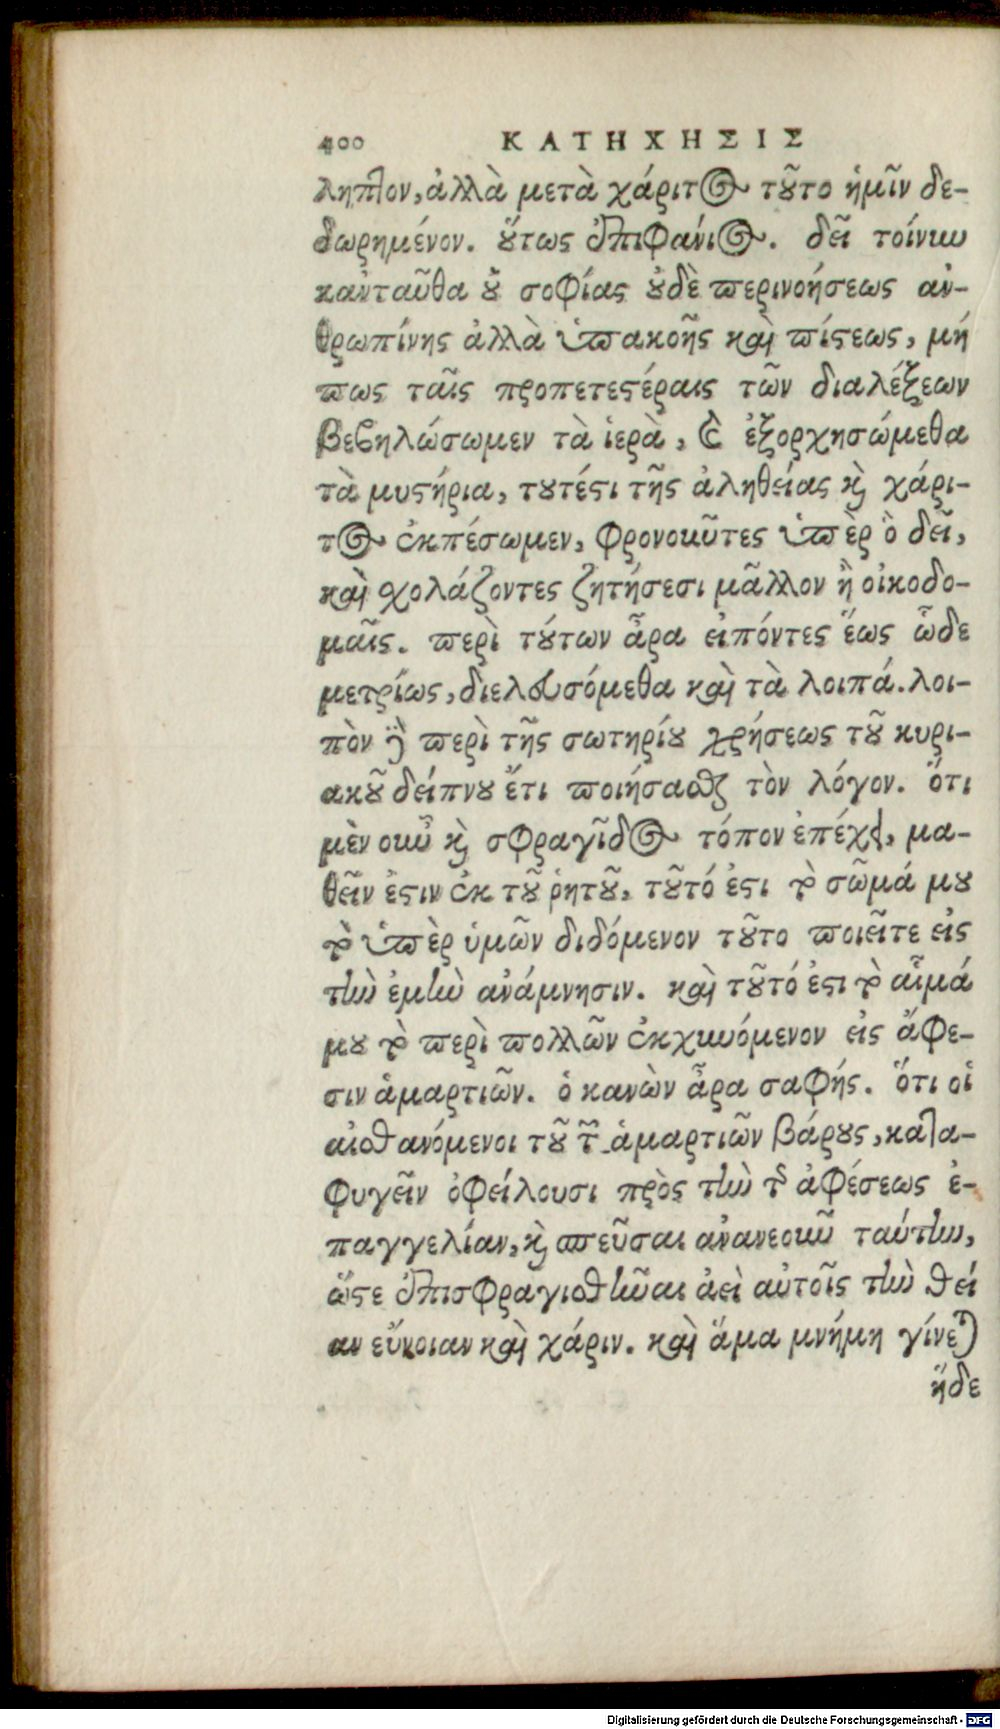 400 ΚΑΤΗΧΗΣΙΣ
ληπτον, ἀλλὰ μετὰ χάριτος τοῦτο ἡμῖν δε-
δωρημένον. οὕτως ἐπιφάνιος. δεῖ τοίνυν
κἀνταῦθα οὐ σοφίας οὐδὲ περινοήσεως ἀν-
θρωπίνης ἀλλὰ ὑπακοῆς καὶ πίστεως, μή
πως ταῖς προπετεστέραις τῶν διαλέξεων
βεβηλώσωμεν τὰ ἱερὰ, καὶ ἐξορχησώμεθα
τὰ μυστήρια, τουτέστι τῆς ἀληθείας καὶ χάρι-
τος ἐκπέσωμεν, φρονοῦντες ὑπὲρ ὃ δεῖ,
καὶ σχολάζοντες ζητήσεσι μᾶλλον ἢ οἰκοδο-
μαῖς. περὶ τούτων ἆρα εἰπόντες ἕως ὧδε
μετρίως, διελευσόμεθα καὶ τὰ λοιπά. λοι-
πὸν δὲ περὶ τῆς σωτηρίου χρήσεως τοῦ κυρι-
ακοῦ δείπνου ἔτι ποιήσασθαι τὸν λόγον. ὅτι
μὲν οὖν καὶ σφραγῖδος τόπον ἐπέχει, μα-
θεῖν ἐστιν ἐκ τοῦ ῥητοῦ, τοῦτό ἐστι τὸ σῶμά μου
τὸ ὑπὲρ ὑμῶν διδόμενον τοῦτο ποιεῖτε εἰς
τὴν ἐμὴν ἀνάμνησιν. καὶ τοῦτό ἐστι τὸ αἷμά
μου τὸ περὶ πολλῶν ἐκχυνόμενον εἰς ἄφε-
σιν ἁμαρτιῶν. ὁ κανὼν ἆρα σαφής. ὅτι οἱ
αἰσθανόμενοι τοῦ τῶν ἁμαρτιῶν βάρους, κατα-
φυγεῖν ὀφείλουσι πρὸς τὴν τῆς ἀφέσεως ἐ-
παγγελίαν, καὶ σπεῦσαι ἀνανεοῦν ταύτην,
ὥστε ἐπισφραγισθῆναι ἀεὶ αὐτοῖς τὴν θεί
αν εὔνοιαν καὶ χάριν. καὶ ἅμα μνήμη γίνεται
ἥδε
Digitalisierung gefördert durch die Deutsche Forschungsgemeinschaft - DFG